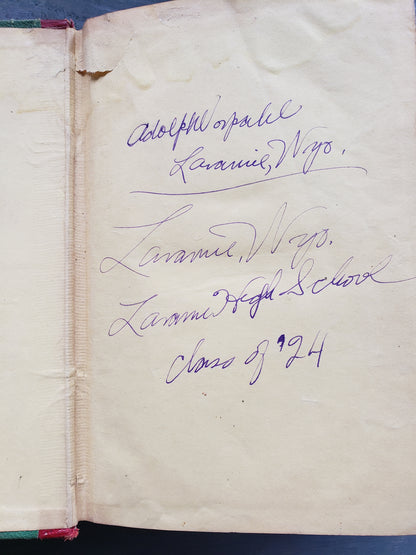 Adolph Vorpahl
Laramie, Wyo.
Laramie, Wyo.
Laramie High School
Class of '24